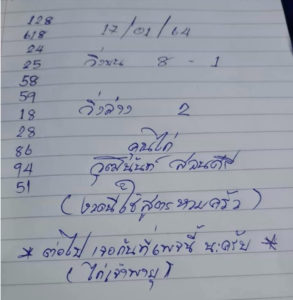 128
618
24
25
58
59
18
28
86
94
51
17/01/64
วิ่งบน 8 - 1
วิ่งล่าง 2
คุณไก่
วุฒินันท์ สวนศรี
(งวดนี้ใช้สูตรหามครัว)
* ต่อไป เจอกันที่เพจนี้ นะครับ *
(ไก่เจ้าพายุ)